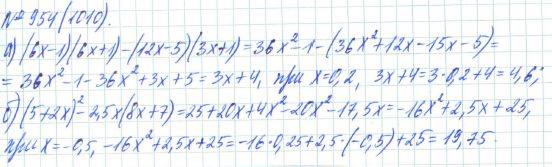 № 954(1010).
а) (6x-1)(6x+1)-(12x-5)(3x+1)=36x²-1-(36x²+12x-15x-5)=
=36x²-1-36x²+3x+5=3x+4, при x=0,2, 3x+4=3·0,2+4=4,6;
б) (5+2x)²-2,5x(8x+7)=25+20x+4x²-20x²-17,5x=-16x²+2,5x+25,
при x=-0,5, -16x²+2,5x+25=-16·0,25+2,5·(-0,5)+25=19,75.